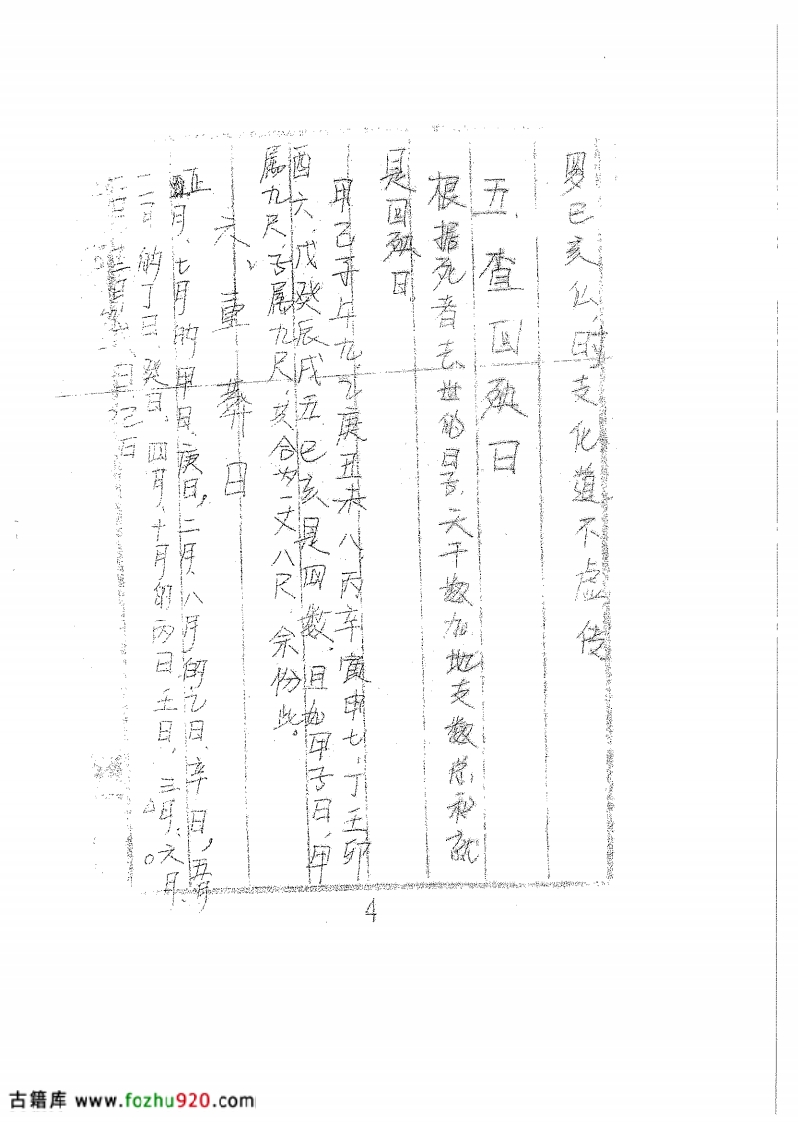 罗巳亥仏,时支化道不虚传
五、查回殃日
根据死者去世的日号、天干数加地支数总和就
是回殃日。
甲己子午九,乙庚丑未八,丙辛寅申七,丁壬卯
酉六,戊癸辰戌五,巳亥是四数,且如甲子日,甲
属九尺,子属九尺,共合为一丈八尺,余份此。
六、重葬日
正月、七月的甲日、庚日,二月、八月的乙日、辛日,五月
的丁日、癸日,四月、十月的丙日壬日,三月、六月、
日己日
4
古籍库 www.fozhu920.com